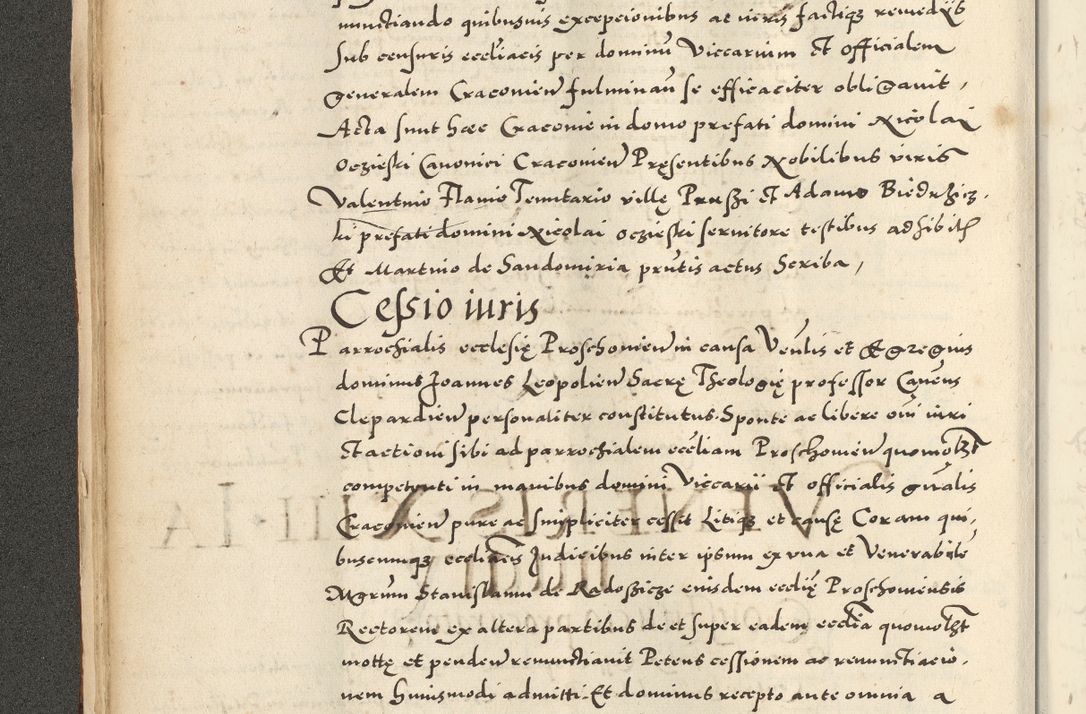 nunctiando quibusuis excepcionibus ac iuris factiqȝ remedijs
sub censuris eccliacis per dominū Viccarium et officialem
generalem Cracovien̄ fulminan̄ se efficaciter obligauit ,
Acta sunt hæc Cracovie in domo prefati domini Nicolai
Oczieski Canonici Cracovien̄ Pręsentibus Nobilibus viris
Valentino Flavio Tenutario villę Prusʒi et Adamo Biedrʒiƈʒ
ki prefati domini Nicolai oczieski seruitore testibus adhibitis
Et Martino de Sandomiria pr̄ntis actus Scriba ,
Cessio iuris
Parrochialis ecclesię Proschovien̄ in causa Ven̄lis et Egregius
dominus Joannes Leopolien̄ Sacrę Theologię professor Can̄cus
Clepardien̄ personaliter constitutus. Sponte ac libere om̄i iuri
et actioni sibi ad parrochialem eccliam Proschovien̄ quomol3t
competenti in manibus domini Viccarii et officialis gn̄alis
Cracovien̄ pure ac simpliciter cessit Litiqȝ et causę Coram qui-
buscumqȝ eccliacis Judicibus inter ipsum ex vna et Venerabilē
Mgrum Stanislaum de Radoszicze eiusdem ecclię Proschouiensis
Rectorem ex altera partibus de et super eadem ecclia quomol3t
mottę et penden̄ renunctiauit Petens cessionem ac renunctiacio-
nem huiusmodi admitti. Et dominus recepto ante omnia a